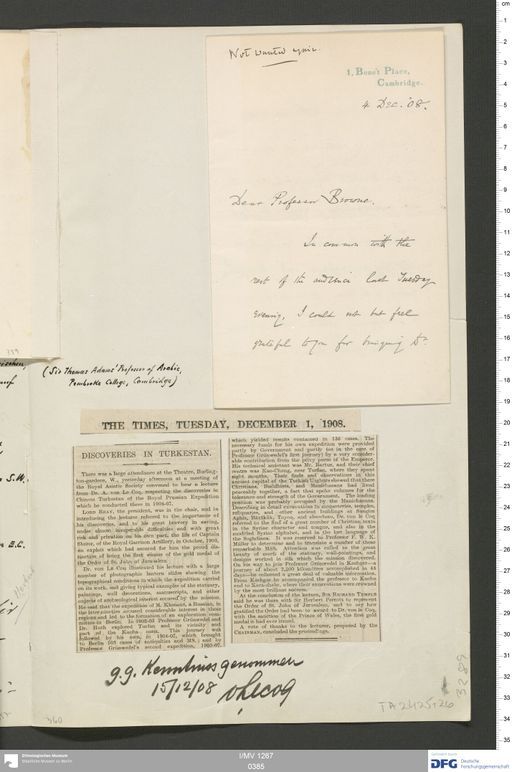 1, Bene't Place,
Cambridge.
4 Dec. '08.
Dear Professor Browne,
In common with the
rest of the audience last Tuesday
evening, I could not but feel
grateful to you for bringing Dr.
(Sir Thomas Adams' Professor of Arabic,
Pembroke College, Cambridge)
THE TIMES, TUESDAY, DECEMBER 1, 1908.
DISCOVERIES IN TURKESTAN.
There was a large attendance at the Theatre, Burling-
ton-gardens, W., yesterday afternoon at a meeting of
the Royal Asiatic Society convened to hear a lecture
from Dr. A. von Le Coq, respecting the discoveries in
Chinese Turkestan of the Royal Prussian Expedition
which he conducted there in 1904-07.
LORD REAY, the president, was in the chair, and in
introducing the lecturer referred to the importance of
his discoveries, and to his great bravery in saving,
under almost incomparable difficulties and with great
risk and privation on his own part, the life of Captain
Sherer, of the Royal Garrison Artillery, in October, 1906,
an exploit which had secured for him the proud dis-
tinction of being the first winner of the gold medal of
the Order of St. John of Jerusalem.
Dr. von Le Coq illustrated his lecture with a large
number of photographic lantern slides showing the
topographical conditions in which the expedition carried
on its work, and giving typical examples of the statuary,
paintings, wall decorations, manuscripts, and other
objects of archæological interest secured by the mission.
He said that the expedition of M. Klementz, a Russian, in
the later nineties aroused considerable interest in these
regions and led to the formation of an exploration com-
mittee in Berlin. In 1902-03 Professor Grünwedel and
Dr. Huth explored Turfan and its vicinity and
part of the Kucha oasis. This journey was
followed by his own, in 1904-07, which brought
to Berlin 103 cases of antiquities and MSS.; and by
Professor Grünwedel's second expedition, 1905-07,
which yielded results contained in 136 cases. The
necessary funds for his own expedition were provided
partly by Government and partly (as in the case of
Professor Grünwedel's first journey) by a very consider-
able contribution from the privy purse of the Emperor.
His technical assistant was Mr. Bartus, and their chief
centre was Kao-Chang, near Turfan, where they spent
eight months. Their finds and observations in this
ancient capital of the Turkish Uighurs showed that there
Christians, Buddhists, and Manichæans had lived
peaceably together, a fact that spoke volumes for the
tolerance and strength of the Government. The leading
position was probably occupied by the Manichæans.
Describing in detail excavations in monasteries, temples,
reliquaries, and other ancient buildings at
Aghis, Bäzäklik, Toyoq, and elsewhere, Dr. von le Coq
referred to the find of a great number of Christian texts
in the Syriac character and tongue, and also in the
modified Syriac alphabet, and in the language
of the Soghdians. It was reserved to Professor F. W. K.
Müller to determine and to translate a number of these
remarkable MSS. Attention was called to the great
beauty of much of the statuary, wall-paintings, and
designs worked in silk which the mission discovered.
On his way to join Professor Grünwedel in Kashgar—a
journey of about 2,500 kilomètres accomplished in 44
days—he collected a great deal of valuable information.
From Kashgar he accompanied the professor to Kucha
and to Kara-shahr, where their excavations were crowned
by the most brilliant success.
At the conclusion of the lecture, SIR RICHARD TEMPLE
said he was there with Sir Herbert Perrott to represent
the Order of St. John of Jerusalem, and to say how
gratified the Order had been to award to Dr. von le Coq,
with the sanction of the Prince of Wales, the first gold
medal it had ever issued.
A vote of thanks to the lecturer, proposed by the
CHAIRMAN, concluded the proceedings.
g.g. Kenntniss genommen
15/12/08 v Lecoq
TA 2425/26
3289
360
Ethnologisches Museum
Staatliche Museen zu Berlin
I/MV 1267
0385
DFG Deutsche
Forschungsgemeinschaft